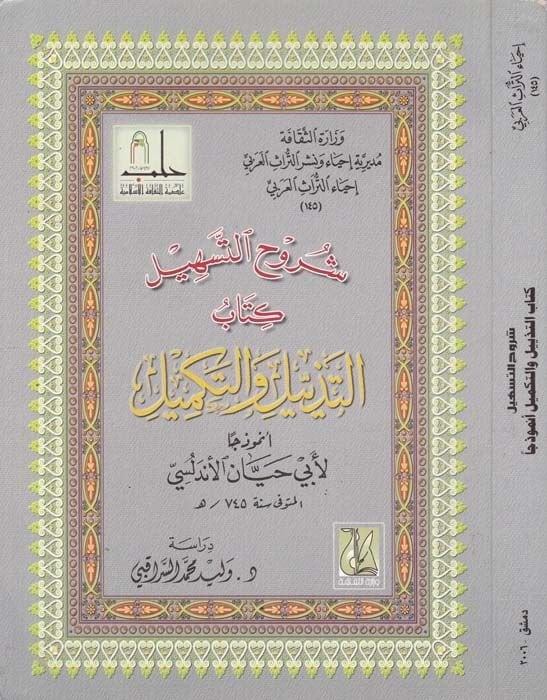 وزارة الثقافة
مديرية إحياء ونشر التراث العربي
إحياء التراث العربي
(١٤٥)
حلب
عاصمة الثقافة الإسلامية
شروح التسهيل
كتاب
التذييل والتكميل
أنموذجًا
لأبي حيان الأندلسي
المتوفى سنة ٧٤٥ / هـ
دراسة
د. وليد محمد السراقبي
وزارة الثقافة
إحياء التراث العربي
(١٤٥)
شروح التسهيل
كتاب التذييل والتكميل أنموذجاً
دمشق - ٢٠٠٦